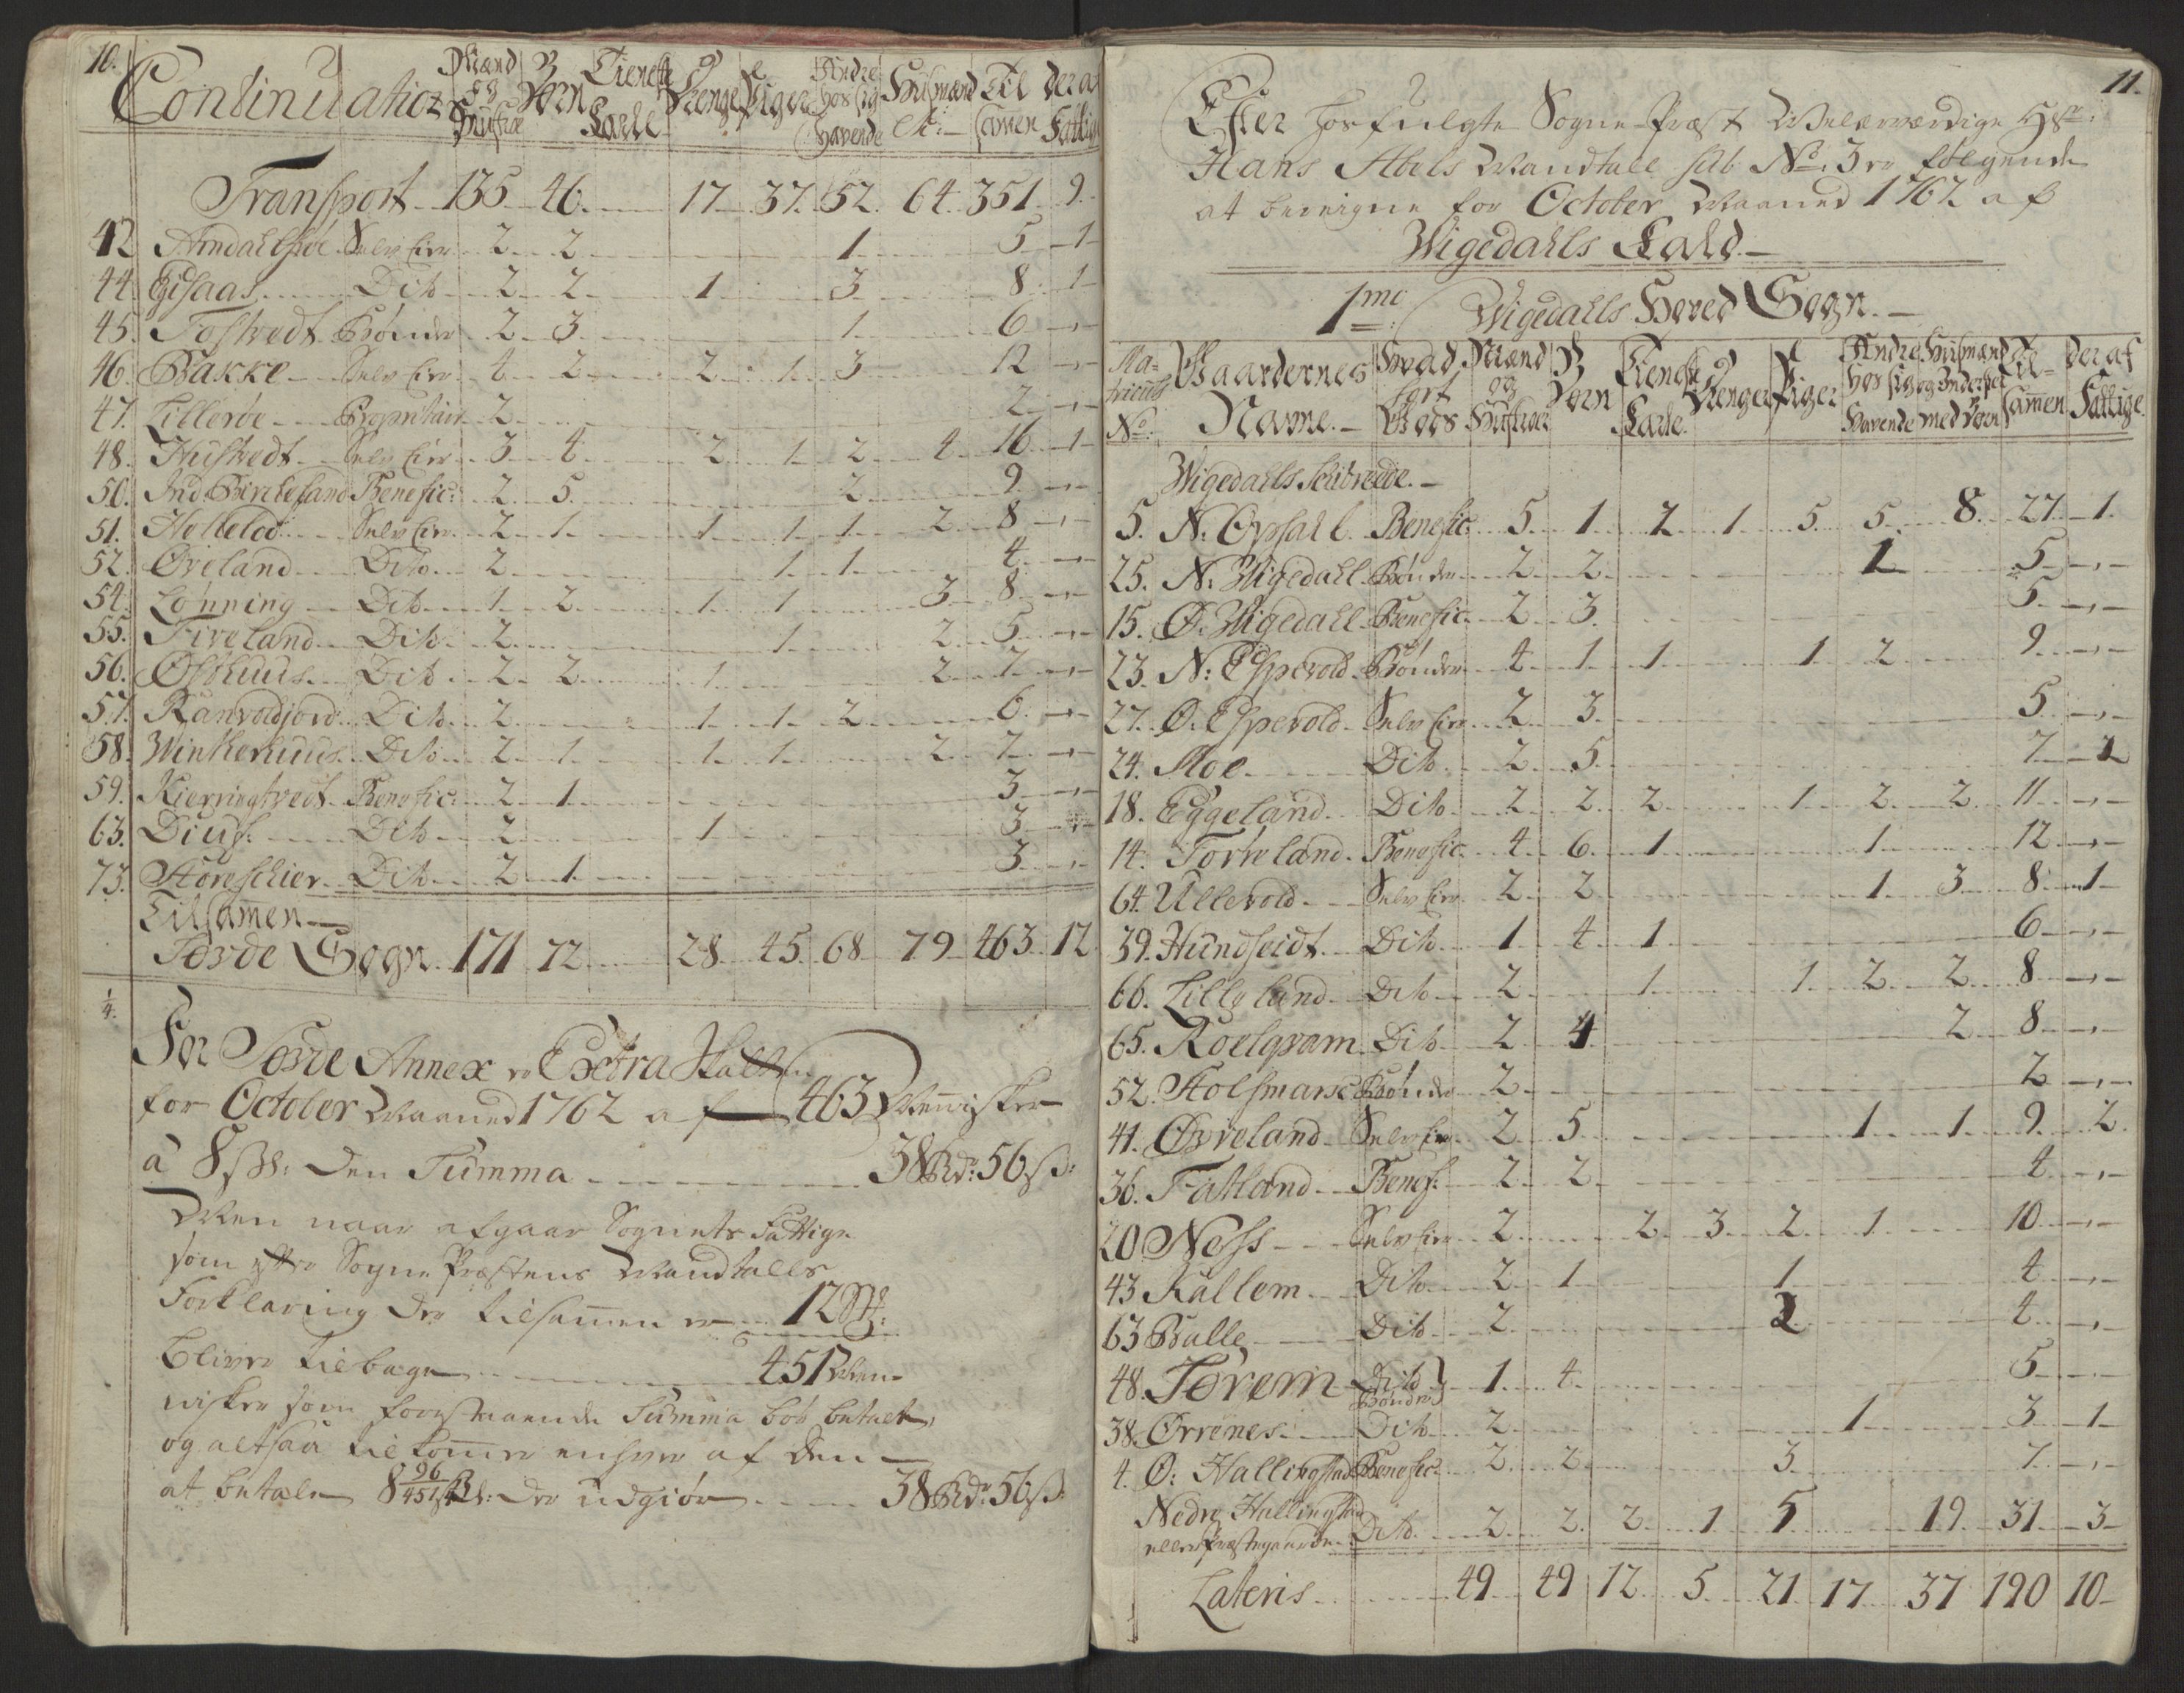 10.
Continuation | Mænd og Hustrue | Børn | Tieneste Karle | Drenge | Piger | Andre hos sig Havende | Huusmænd etc: | Til samen | der af Fattige
Transport 135 46 17 37 52 64 351 9
42 Amdahlsøe Selv Eier 2 2 1 5 1
44 Gisaas Dito 2 2 1 3 8 1
45. Tostvedt Bønder 2 3 1 6
46. Bakke Selv Eier 4 2 2 1 3 12
47. Lillerøe Proprietair 2 2
48. Hustvedt Selv Eier 3 4 2 1 2 4 16 1
50. Ind. Bircheland Benefic: 2 5 2 9
51. Hollelod Selv Eier 2 1 1 1 1 2 8
52. Øveland Dito 2 1 1 4
54. Lønning Dito 1 2 1 1 3 8
55. Fiveland Dito 2 1 2 5
56. Østhuus Dito 2 2 1 2 7
57. Ranvoldjord Dito 2 1 1 2 6
58. Winterhuus Dito 2 1 1 1 2 7
59. Kierringtvedt Benefic: 2 1 3
63. Diuf: Dito 2 1 3
73. Støreschier Dito 2 1 3
Tilsamen
Førde Sogn 171 72 28 45 68 79 463 12
1/4.
For Førde Annex er Extra Skatten
for October Maaned 1762 af 463 Mennisker
à 8 s Bl: den Summa 38 Rdr: 56 s:
Men naar afgaar Sognets Fattige
som efter Sogne Præstens Mandtalls
Forklaring der tilsammen er 12 St:
bliver tilbage 451 Men-
nisker som forestaaende Summa bør betale,
og altsaa tilkommer enhver af dem
at betale 8 96/451 s Bl: der udgiør 38 Rdr: 56 s:
11.
Efter hosfulgte Sogne-Præst Welærværdige Hr:
Hans Abels Mandtall sub No: 3 er følgende
at beregne for October Maaned 1762 af
Wigedahls Kald.
1mo: Wigedahls Hoved Sogn.
Ma-tricul No: | Gaardernes Navne. | Hvad sort Gods | Mænd og Hustruer | Børn | Tieneste Karle | Drenge | Piger | Andre hos sig Havende | Huusmænd og Inderster med Børn | Til-samen | der af Fattige
Wigedahls Schibrede.
5. N: Opsahl Benefic: 5 1 2 1 5 5 8 27 1
25. N: Wigedahl Bønder 2 2 1 5
15. Ø: Wigedahl Benefic: 2 3 5
23. N: Espevold Bønder 4 1 1 1 2 9
27. Ø: Espevold Selv Eier 2 3 5
24. Moe Dito 2 5 7 1
18. Eggeland Dito 2 2 2 1 2 2 11
14. Førreland Benefic: 4 6 1 1 12
64. Ullevold Selv Eier 2 2 1 3 8 1
39. Hundseidt Dito 1 4 1 6
66. Lillyland Dito 2 1 1 2 2 8
65. Roelqvam Dito 2 4 2 8
52. Stolsmarie Bønder 2 2
41. Øvreland Selv Eier 2 5 1 1 9 2
36. Fatland Benef: 2 2 4
20 Ness Selv Eier 2 2 3 2 1 10
43 Kallem Dito 2 1 1 4
63 Balle Dito 2 2 4
48. Førem Dito Bønder 1 4 5
38. Ørrenes Dito 2 1 3 1
4. Ø: Hallingstad Benefic: 2 2 3 7
Nedre Hallingstad
eller Præstegaarden Dito 2 2 2 1 5 19 31 3
Lateris 49 49 12 5 21 17 37 190 10